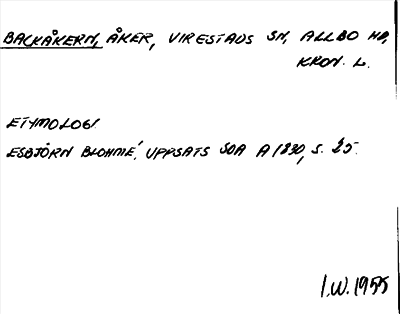 BACKÅKERN, ÅKER, VIRESTADS SN, ALLBO HD,
KRON. L.
ETYMOLOGI.
ESBJÖRN BLOHMÉ, UPPSATS SOA A 1830, S. 25.
I.W. 1955